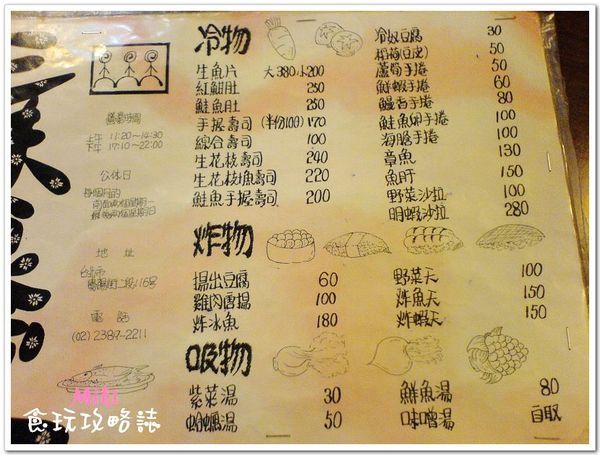 營業時間
上午 11:20~14:30
下午 17:10~22:00
公休日
地址
台北市
二段116號
電話
(02) 2387-2211
冷物
生魚片 大380小200
紅魽肚 250
鮭魚肚 250
手握壽司 (半份100) 170
綜合壽司 100
生花枝壽司 240
生花枝魚壽司 220
鮭魚手握壽司 200
冷奴豆腐 30
稻荷(豆皮) 50
蘆筍手捲 50
鮮蝦手捲 60
鰻香手捲 80
鮭魚卵手捲 100
海膽手捲 100
章魚 130
魚肝 150
野菜沙拉 100
明蝦沙拉 280
炸物
揚出豆腐 60
雞肉唐揚 100
炸冰魚 180
野菜天 100
炸魚天 150
炸蝦天 150
吸物
紫菜湯 30
蛤蠣湯 50
鮮魚湯 80
味噌湯 自取
Miki
食玩攻略誌